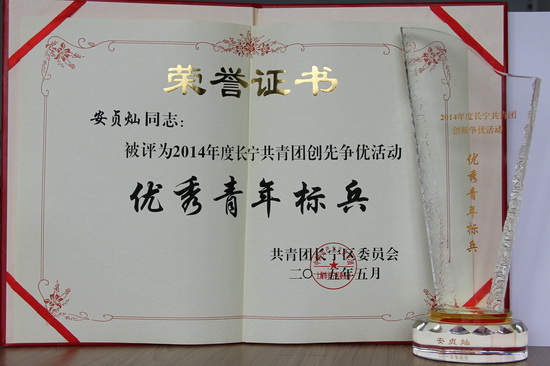 荣誉证书
安贞灿同志：
被评为2014年度长宁共青团创先争优活动
优秀青年标兵
共青团长宁区委员会
二〇一五年五月
2014年度长宁共青团
创先争优活动
优秀青年标兵
安贞灿